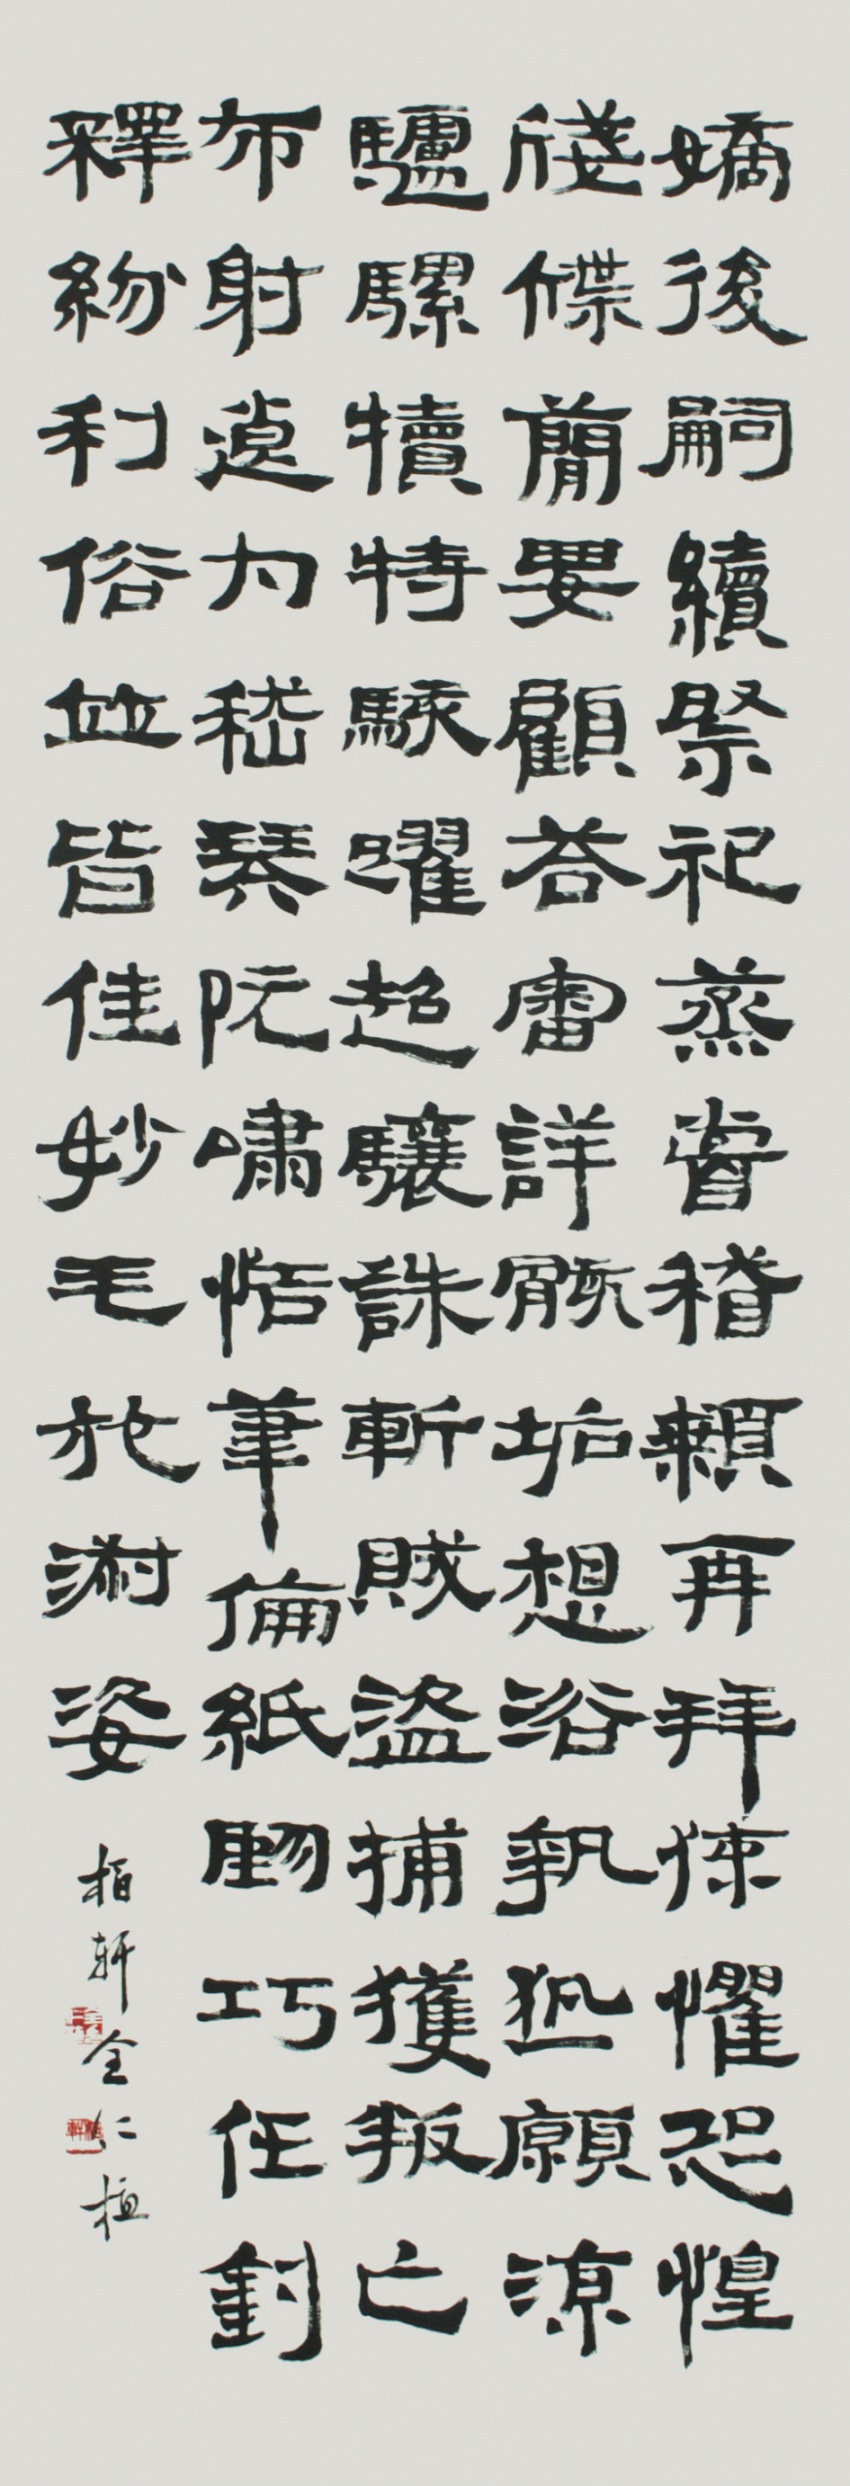 嫡後嗣續祭祀蒸嘗稽顙再拜悚懼恐惶
牋牒簡要顧答審詳骸垢想浴執熱願涼
驢騾犢特駭躍超驤誅斬賊盜捕獲叛亡
布射遼丸嵇琴阮嘯恬筆倫紙鈞巧任釣
釋紛利俗並皆佳妙毛施淑姿
栢軒 全仁植